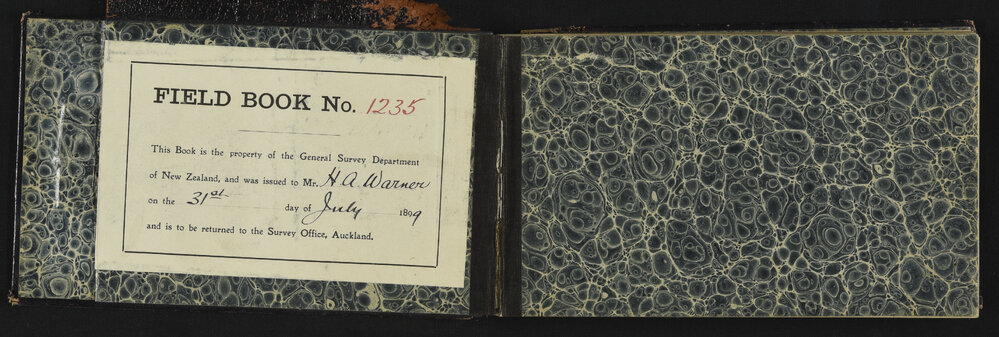 FIELD BOOK No. 1235
This Book is the property of the General Survey Department
of New Zealand, and was issued to Mr. H A Warner
on the 31st day of July 1899
and is to be returned to the Survey Office, Auckland.